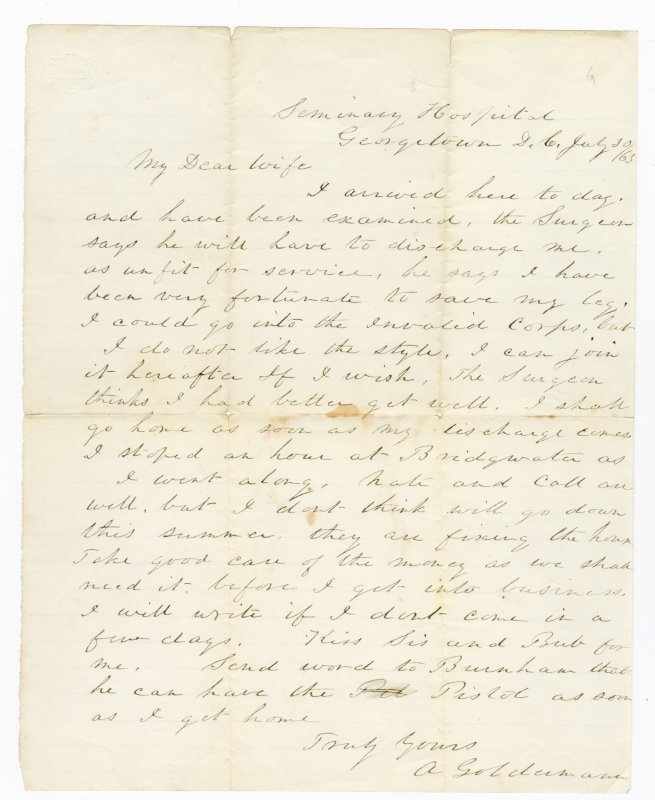 G
Seminary Hospital
Georgetown D. C. July 30/63
My Dear Wife
I arrived here to day.
and have been examined, the Surgeon
says he will have to discharge me.
as unfit for service, he says I have
been very fortunate to save my leg.
I could go into the Invalid Corps, but
I do not like the style, I can join
it hereafter If I wish, The Surgeon
thinks I had better get well. I shall
go home as soon as my discharge comes
I stoped an hour at Bridgwater as
I went along, Kate and Call are
well. but I dont think will go down
this summer. they are fixing the
Take good care of the money as we shall
need it before I get into business.
I will write if I dont come in a
few days. Kiss Sis and Bub for
me. Send word to Burnham that
he can have the Pistol as soon
as I get home
Truly Yours
A Goldermann